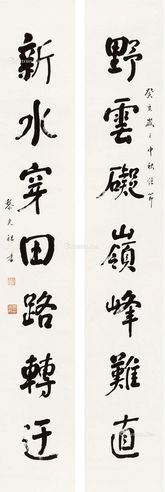 野雲礙嶺峰難直
癸亥歲之中秋佳節
新水穿田路轉迂